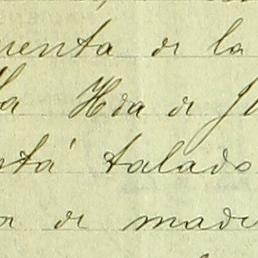 uenta de la
la Hda de J
stá talado
or de made